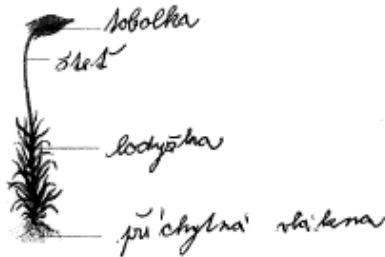 tobolka
štět
lodyžka
příchytná vlákna